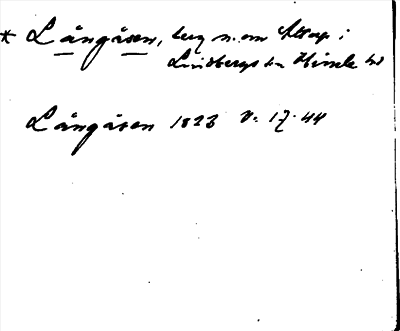 * Långåsen, berg n. om Attarp i
Lindbergs sn Himle hd
Långåsen 1823 V: 17: 44